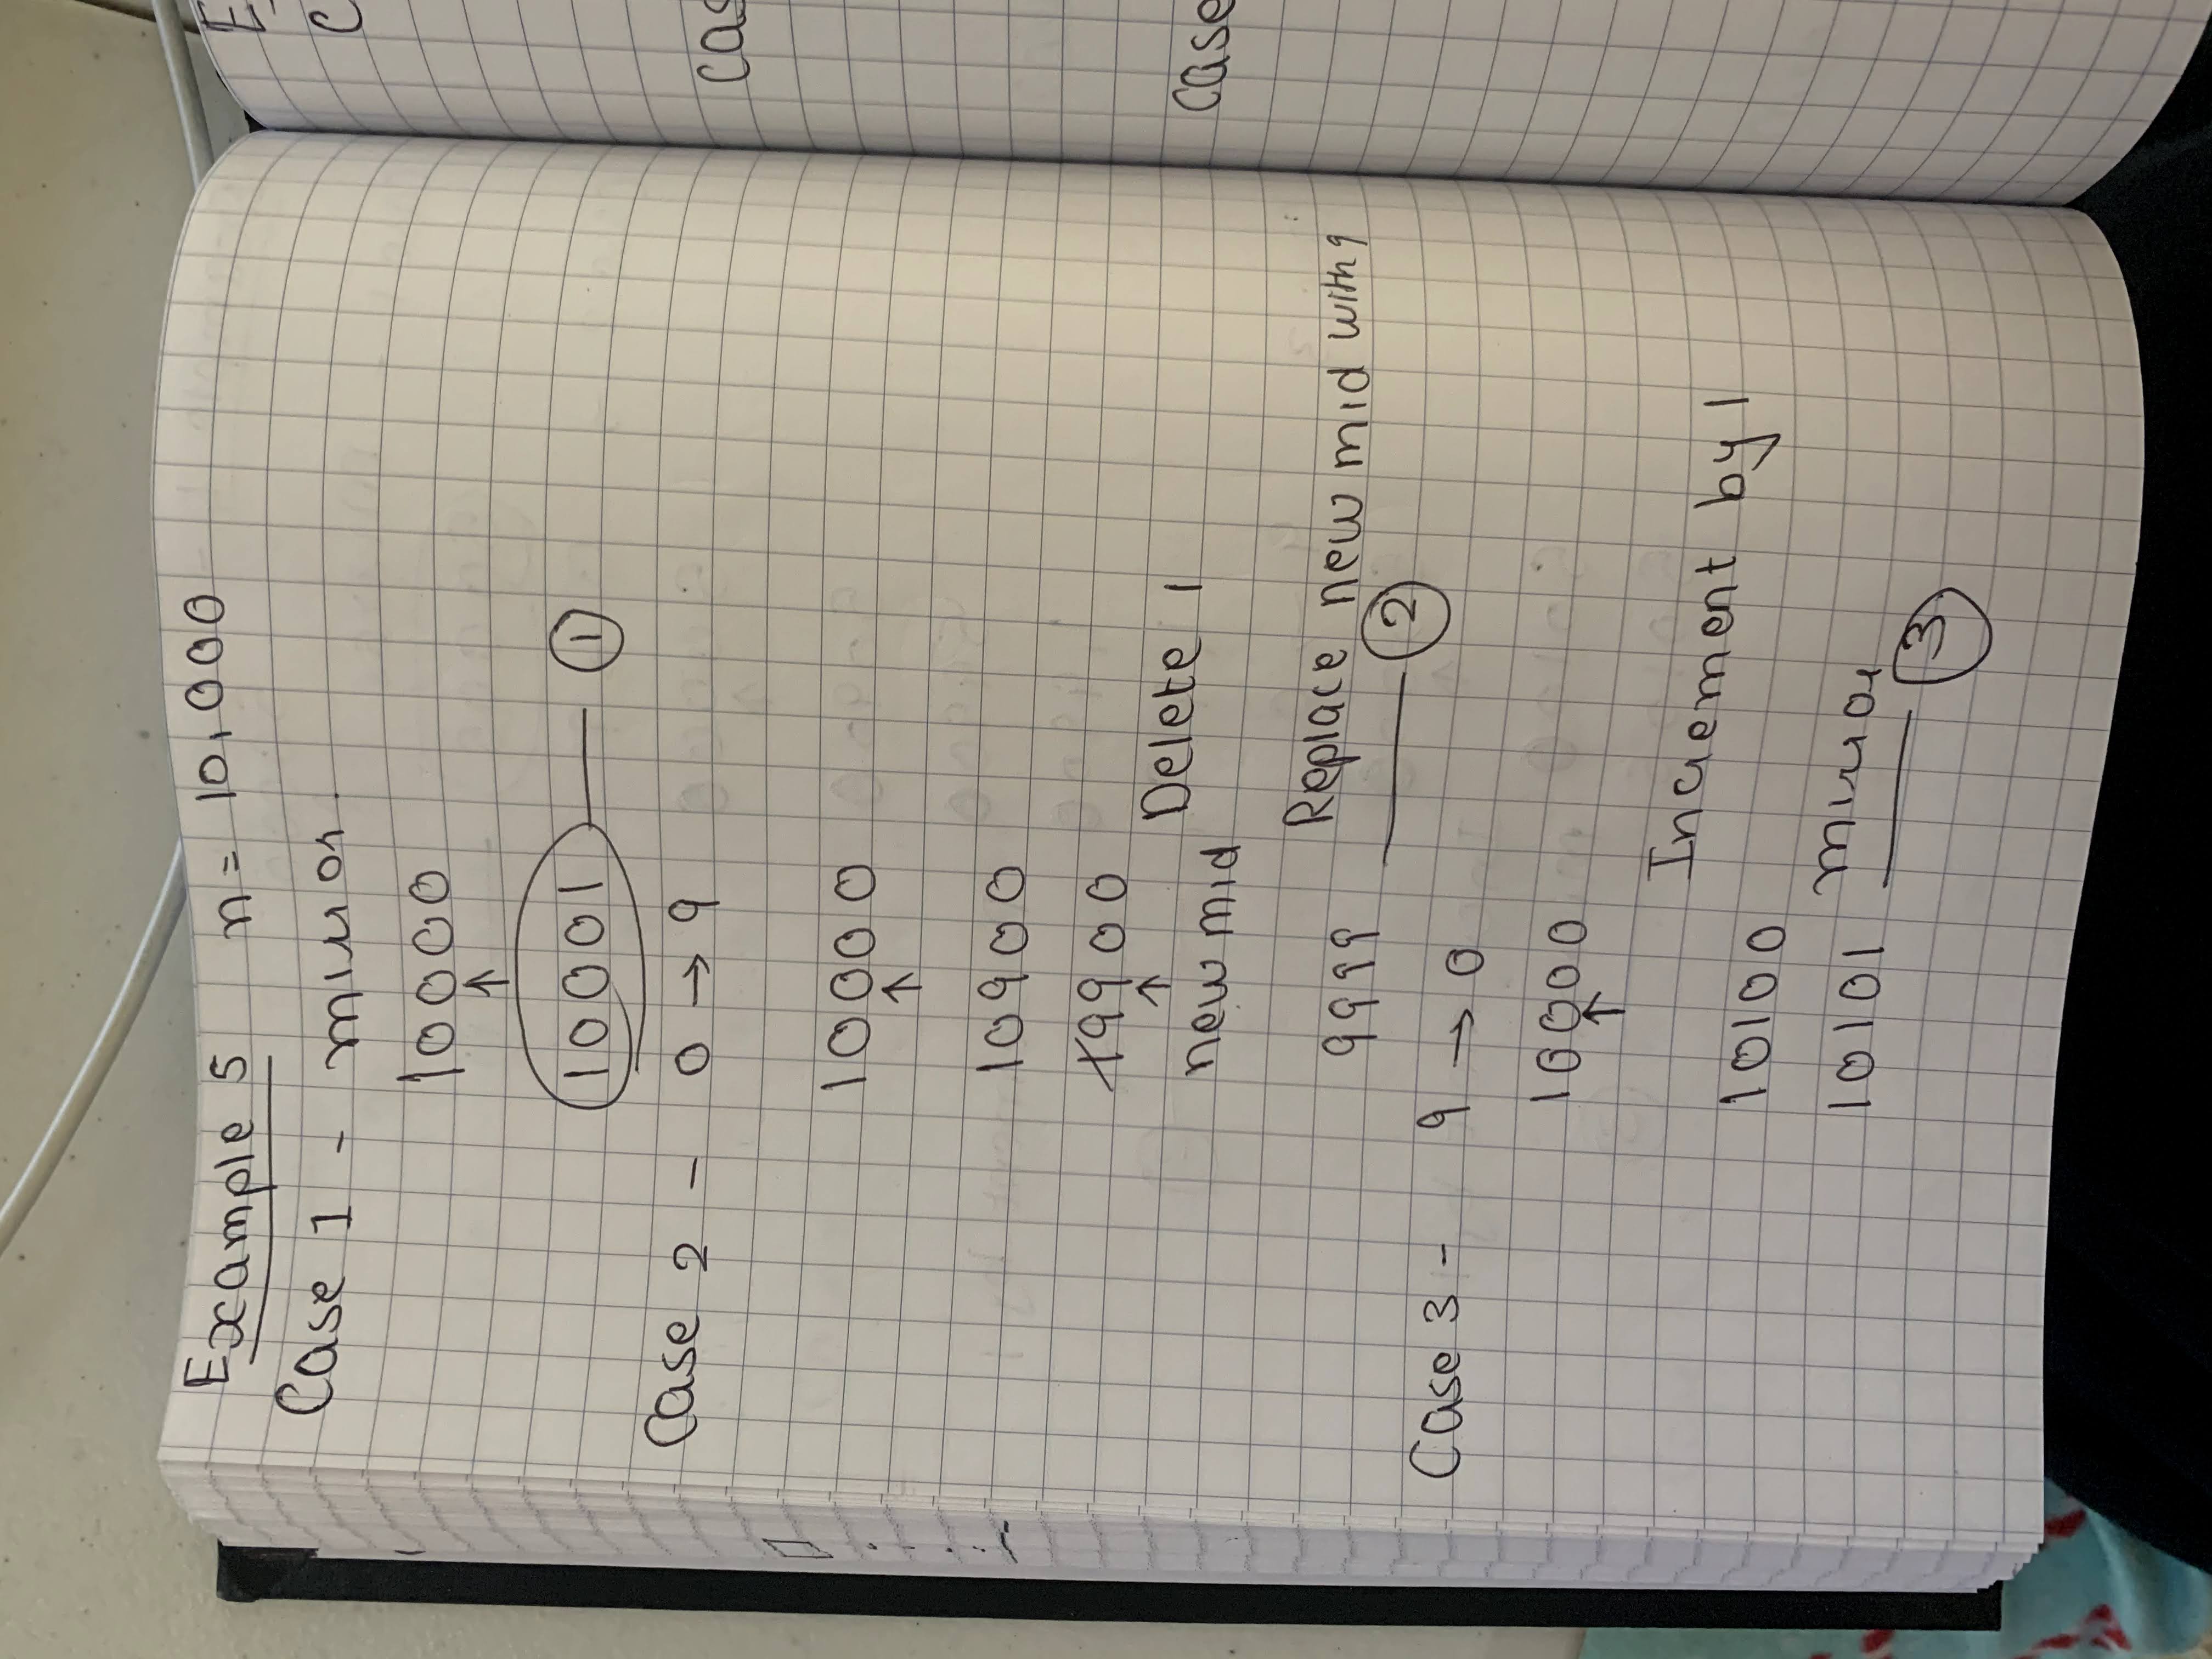 Example 5 n = 10,000
Case 1 - mirror
10000
↑
10001 —— ①
Case 2 - 0 → 9
10000
↑
10900
19900
↑
new mid Delete 1
9999 Replace new mid with 9
—— ②
Case 3 - 9 → 0
10000
↑
Increment by 1
10100
10101 mirror
—— ③
E
C
Cas
Case